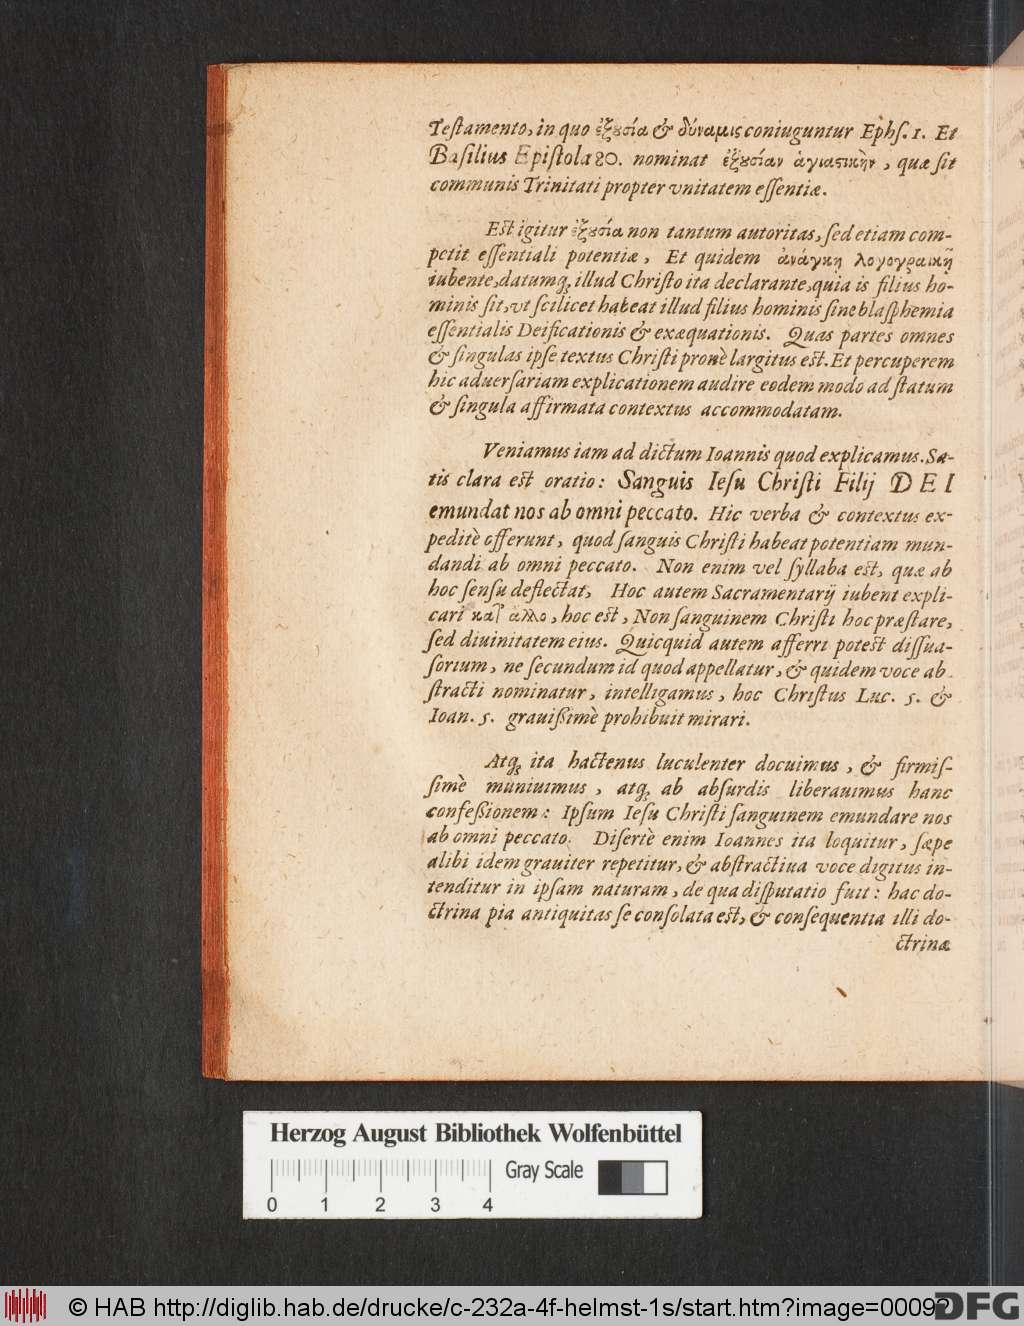 Teſtamento, in quo ἐξουσία & δύναμις coniuguntur Ephſ. 1. Et
Baſilius Epiſtola 80. nominat ἐξουσίαν ἁγιαστικὴν, quæ ſit
communis Trinitati propter vnitatem eſſentiæ.
Eſt igitur ἐξουσία non tantum autoritas, ſed etiam com-
petit eſſentiali potentiæ, Et quidem ἀνάγκη λογογραικῇ
iubente, datumq; illud Chriſto ita declarante, quia is filius ho-
minis ſit, vt ſcilicet habeat illud filius hominis ſine blaſphemia
eſſentialis Deificationis & exæquationis. Quas partes omnes
& ſingulas ipſe textus Chriſti pronè largitus eſt. Et percuperem
hic aduerſariam explicationem audire eodem modo ad ſtatum
& ſingula affirmata contextus accommodatam.
Veniamus iam ad dictum Ioannis quod explicamus. Sa-
tis clara eſt oratio: Sanguis Ieſu Chriſti Filij DEI
emundat nos ab omni peccato. Hic verba & contextus ex-
peditè offerunt, quod ſanguis Chriſti habeat potentiam mun-
dandi ab omni peccato. Non enim vel ſyllaba eſt, quæ ab
hoc ſenſu deflectat, Hoc autem Sacramentarij iubent expli-
cari κατ' ἄλλο, hoc eſt, Non ſanguinem Chriſti hoc præſtare,
ſed diuinitatem eius. Quicquid autem afferri poteſt diſſua-
ſorium, ne ſecundum id quod appellatur, & quidem voce ab
ſtracti nominatur, intelligamus, hoc Chriſtus Luc. 5. &
Ioan. 5. grauißimè prohibuit mirari.
Atq; ita hactenus luculenter docuimus, & firmiſ-
ſimè muniuimus, atq; ab abſurdis liberauimus hanc
confeßionem: Ipſum Ieſu Chriſti ſanguinem emundare nos
ab omni peccato. Diſertè enim Ioannes ita loquitur, ſæpe
alibi idem grauiter repetitur, & abſtractiua voce digitus in-
tenditur in ipſam naturam, de qua diſputatio fuit: hac do-
ctrina pia antiquitas ſe conſolata eſt, & conſequentia illi do-
ctrinæ
Herzog August Bibliothek Wolfenbüttel
Gray Scale
0 1 2 3 4
© HAB http://diglib.hab.de/drucke/c-232a-4f-helmst-1s/start.htm?image=00092
DFG